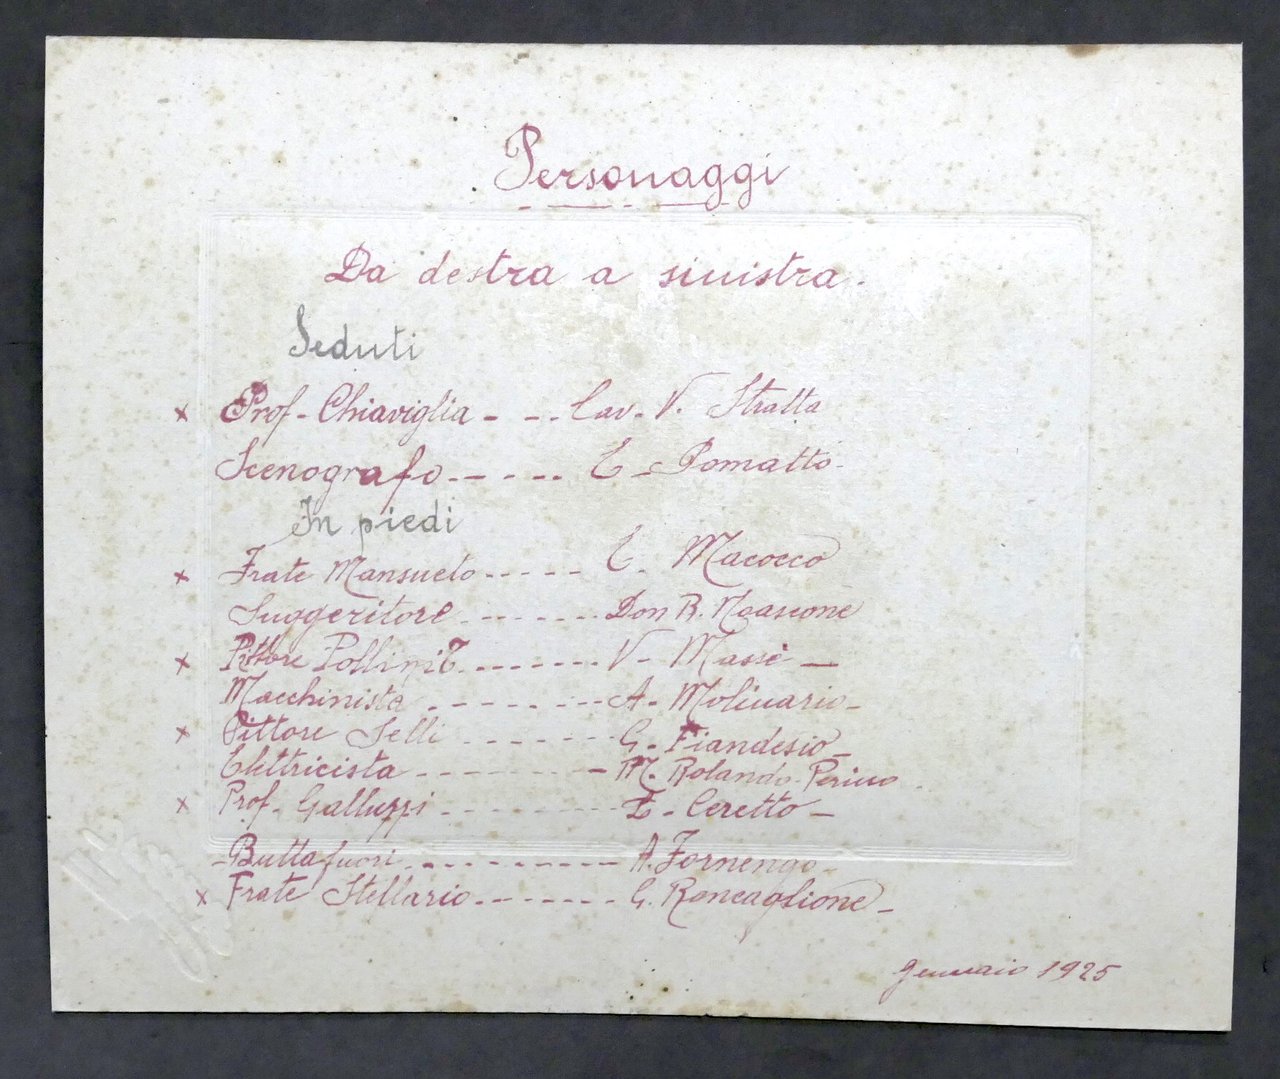 Personaggi
Da destra a sinistra.
Seduti
x Prof. Chiaviglia - - .. Cav. V. Stratta
Scenografo. - - - - .. E. Pomatto
In piedi
x Frate Mansueto - - - - - E. Macocco
Suggeritore - - - - - - - Don R.
x Pittore Pollini - - - - - - - V. Massè -
Macchinista - - - - - - - A. Molinario -
x Pittore Selli - - - - - - - G. Fiandesio -
Elettricista - - - - - - - - M. Rolando Perino
x Prof. Galluppi - - - - - - - - E. Ceretto -
- Buttafuori - - - - - - - - - - A. Fornengo
x Frate Stellario - - - - - - - G. Roncaglione -
Gennaio 1925